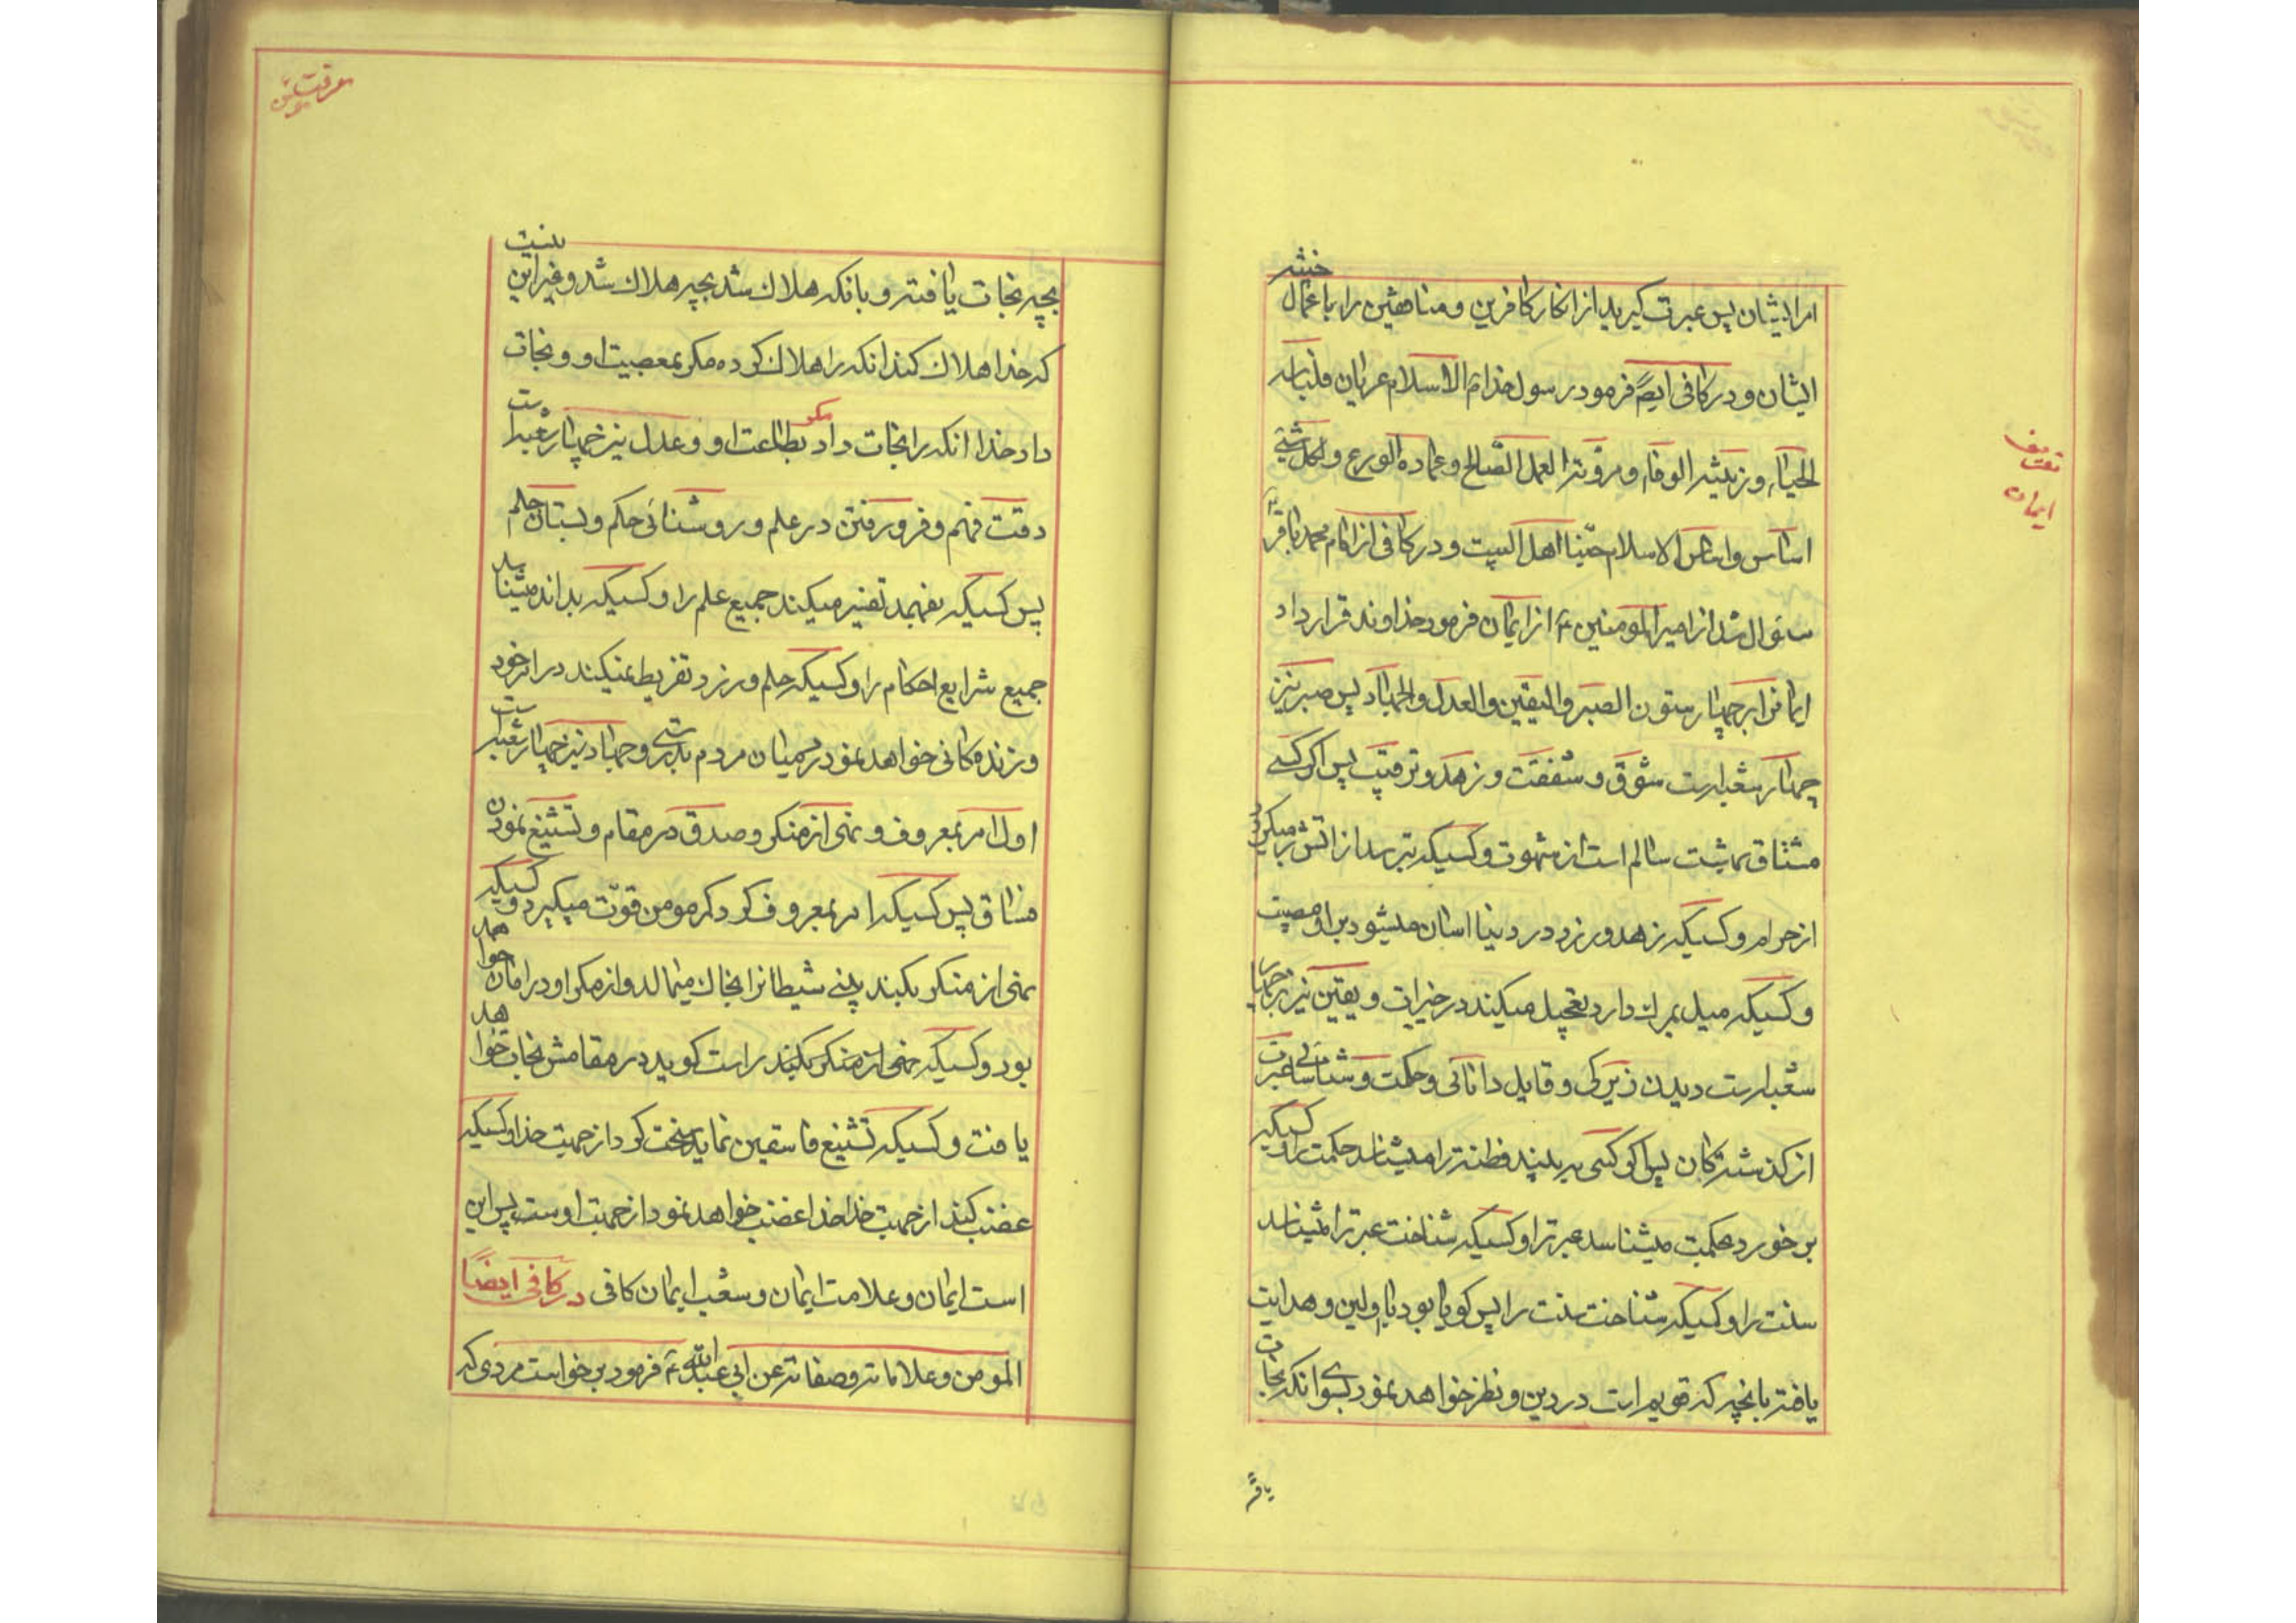 امر ایشان پس عبرت گیرید از انکار کافرین و منافقین را باعمال خبیثه
ایشان و در کافی ایضً فرمود رسول خدا ص الاسلام عریان فلباسه
الحیاء وزینته الوقار ومروّته العمل الصّالح وعماده الورع ولکل شئ
اساس واساس الاسلام حبّنا اهل البیت و در کافی از امام محمد باقرّ
سئوال شد از امیرالمومنین ع از ایمان فرمود خداوند قرار داد
ایمانرا بر چهار ستون الصبر والیقین والعدل والجهاد پس صبر نیز
چهار شعبه است شوق و شفقت و زهد و ترقّب پس اگر کسی
مشتاق بهشت سالم است از شهوت و کسیکه بترسد از اتش بر میگردد
از حرام و کسیکه زهد ورزد در دنیا اسان میشود بر او مصیبت
و کسیکه میل بمرك دارد تعجیل میکند در خیرات و یقین نیز بر چهار
شعبه است دیدن زیرکی و قایل دانائی و حکمت و شناسائی عبرت
از کذشتکان پس اکر کسی به بیند فطنترا میشناسد حکمت را و کسیکه
بر خورد بحکمت میشناسد عبرترا و کسیکه شناخت عبرترا میشناسد
سنت را و کسیکه شناخت سنت را پس کویا بود با اولین و هدایت
یافته بانچه که قویم است در دین و نظر خواهد نمود بسوی انکه نجات
یافته
تعریف
ایمان
معرفت
بچه نجات یافته و بانکه هلاك شد بچه هلاك شد و غیر این نیست
که خدا هلاك کند انکه را هلاك کرده مکر بمعصیت او و نجات
داد خدا انکه را نجات داد مکر بطاعت او و عدل نیز چهار شعبه است
دقت فهم و فرو رفتن در علم و روشنائی حکم و بستان حلم
پس کسیکه بفهمد تفسیر میکند جمیع علم را و کسیکه بداند میشناسد
جمیع شرایع احکام را و کسیکه حلم ورزد تفریط نمیکند در امر خود
و زندکانی خواهد نمود در میان مردم بدرستی و جهاد نیز چهار شعبه است
اول امر بمعروف و نهی از منکر و صدق در مقام و تشنیع نمودن
فساق پس کسیکه امر بمعروف کرد کمر مومن قوّت میکیرد و کسیکه
نهی از منکر بکند بینی شیطانرا بخاك میمالد و از مکر او در امان خواهد
بود و کسیکه نهی از منکر بکند راست کوید در مقامش نجات خواهد
یافت و کسیکه تشنیع فاسقین نماید سخت کرد از جهت خدا و کسیکه
غضب کند از جهت خدا خدا غضب خواهد نمود از جهت اوست پس این
است ایمان و علامت ایمان و شعب ایمان کافی در کافی ایضًا
المومن و علاماته وصفاته عن ابی عبدالله ع فرمود بر خواست مردی که